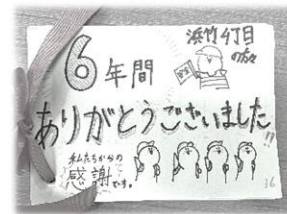 6年間
浜竹4丁目
の方々
ありがとうございました!!
私たちからの
感謝です。